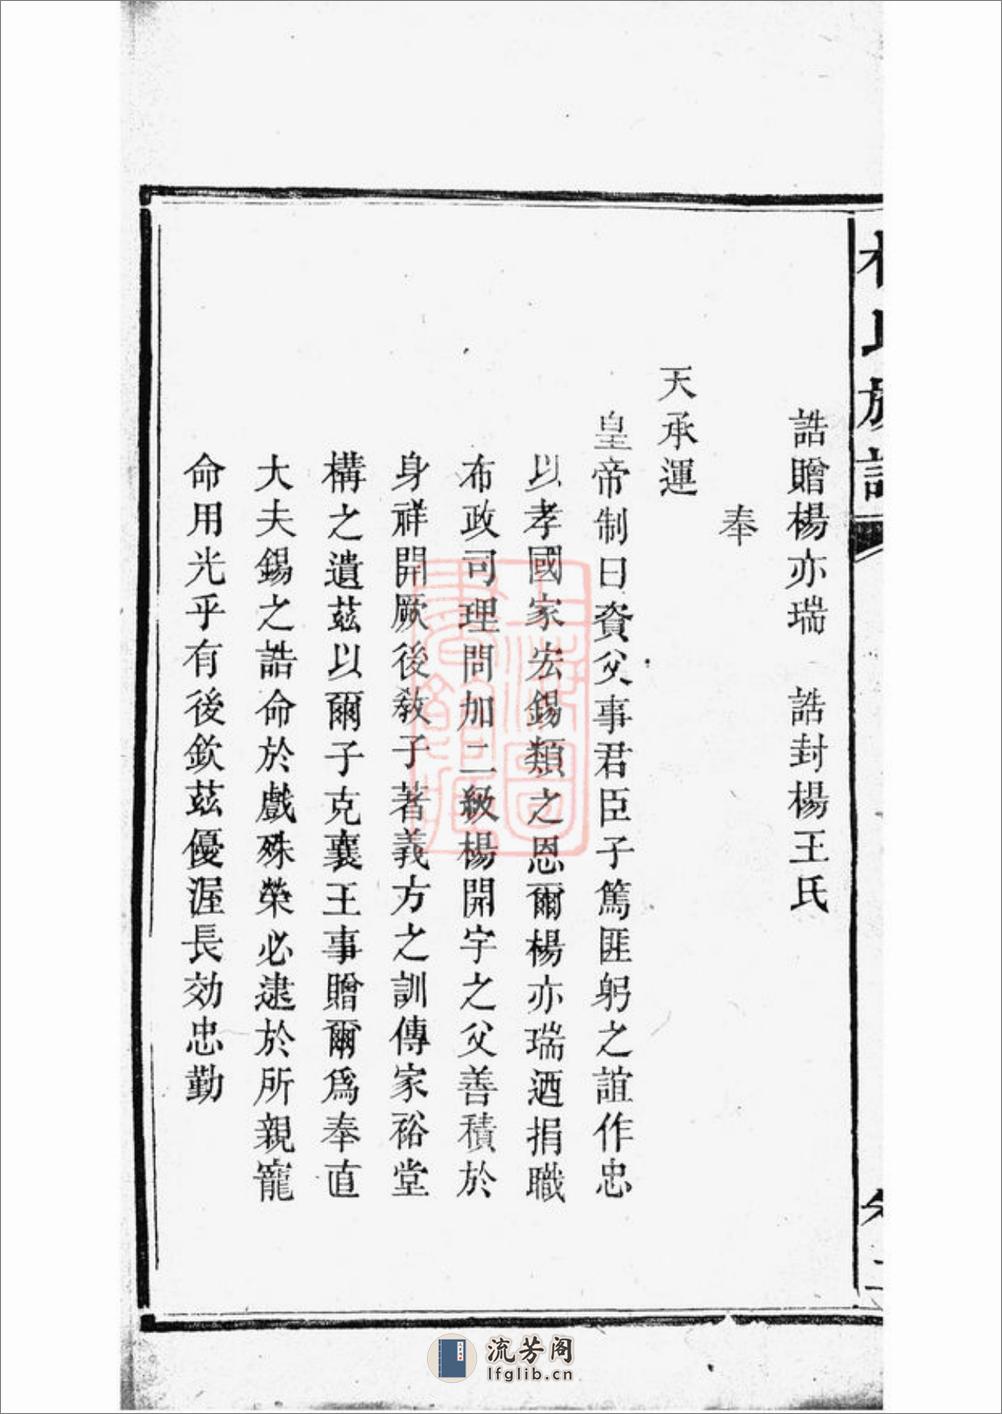 誥贈楊亦瑞　誥封楊王氏
奉
天承運
皇帝制曰資父事君臣子篤匪躬之誼作忠
以孝國家宏錫類之恩爾楊亦瑞迺捐職
布政司理問加二級楊開宇之父善積於
身祥開厥後教子著義方之訓傳家裕堂
構之遺茲以爾子克襄王事贈爾爲奉直
大夫錫之誥命於戲殊榮必逮於所親寵
命用光乎有後欽茲優渥長効忠勤
流芳阁
lfglib.cn